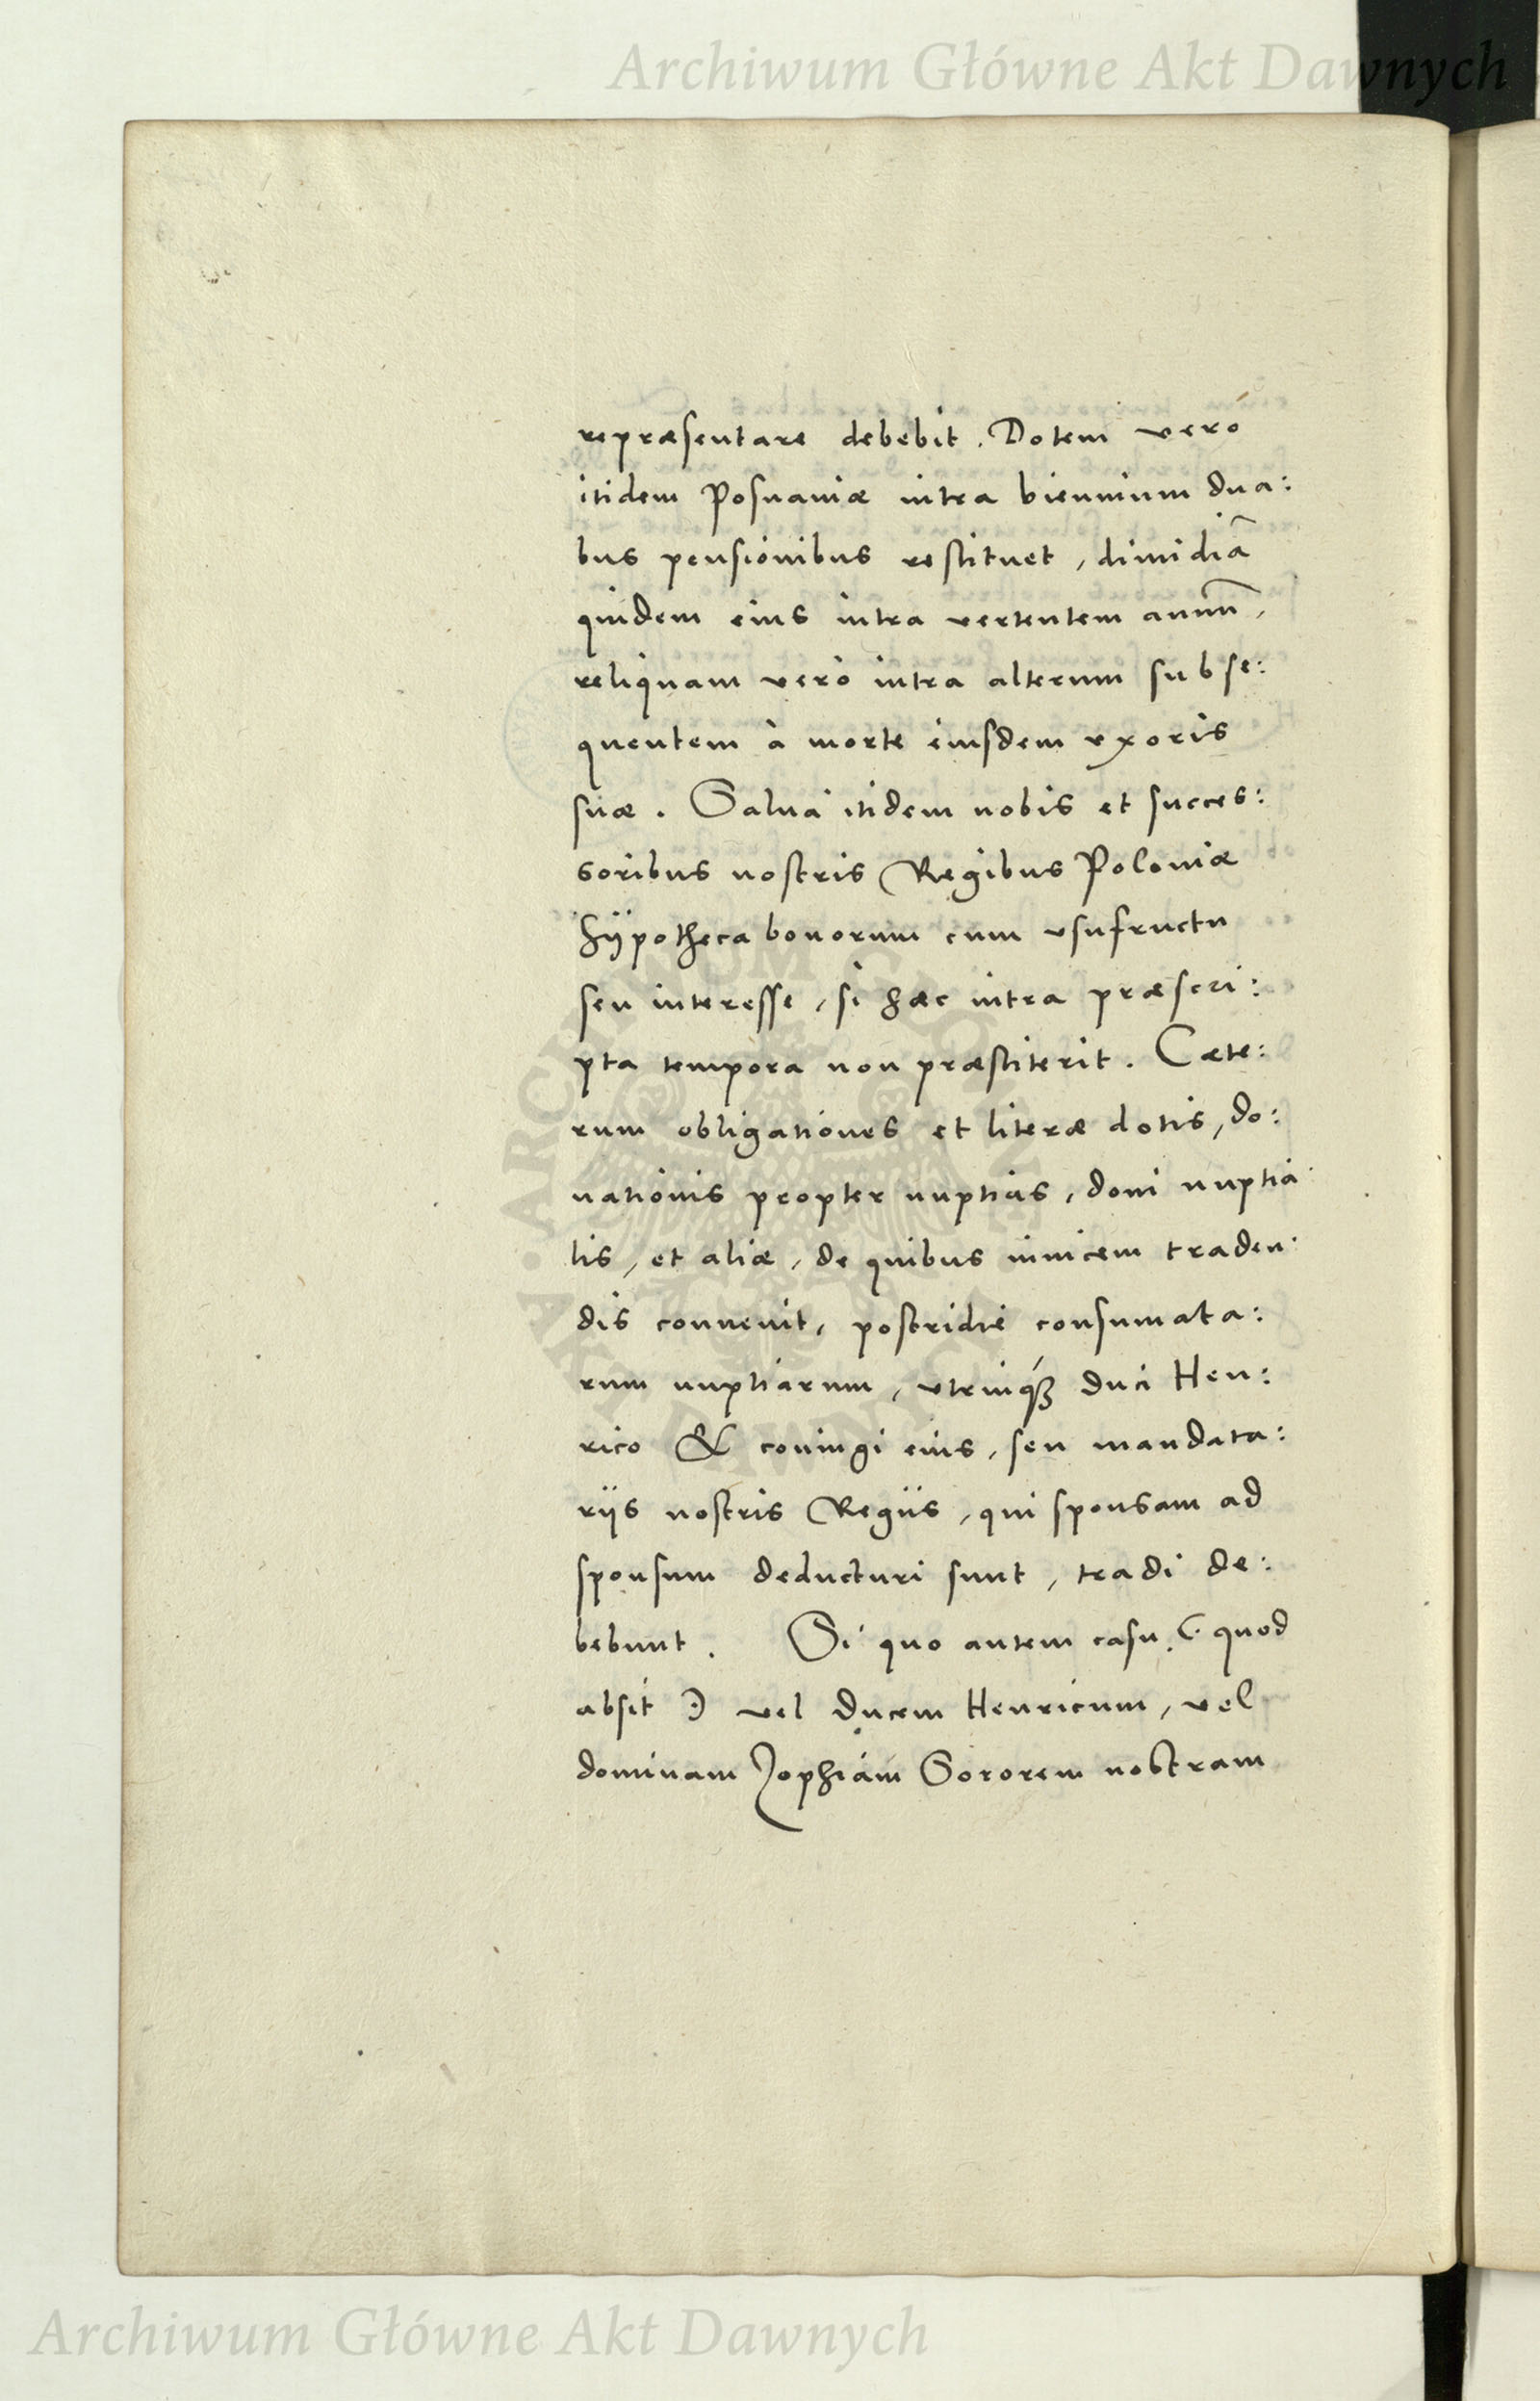 Archiwum Główne Akt Dawnych
repræsentare debebit. Dotem verò
itidem Posnaniæ intra biennium dua:
bus pensionibus restituet, dimidiã
quidem eius intra vertentem annũ,
reliquam verò intra alterum subse:
quentem à morte eiusdem vxoris
suæ. Salua itidem nobis et succes:
soribus nostris Regibus Poloniæ
hÿpotheca bonorum cum vsufructu
seu interesse, si hæc intra præscri:
pta tempora non præstiterit. Cæte:
rum obligationes et literæ dotis, do:
nationis propter nuptias, doni nuptia
lis, et aliæ, de quibus inuicem traden:
dis conuenit, postridie consumata:
rum nuptiarum, vtrinqꝫ duci Hen:
rico & coniugi eius, seu mandata:
rijs nostris Regiis, qui sponsam ad
sponsum deducturi sunt, tradi de:
bebunt. Si quo autem casu (quod
absit) vel Ducem Henricum, vel
dominam Zophiam Sororem nostram
ARCHIWUM GŁÓWNE AKT DAWNYCH
Archiwum Główne Akt Dawnych